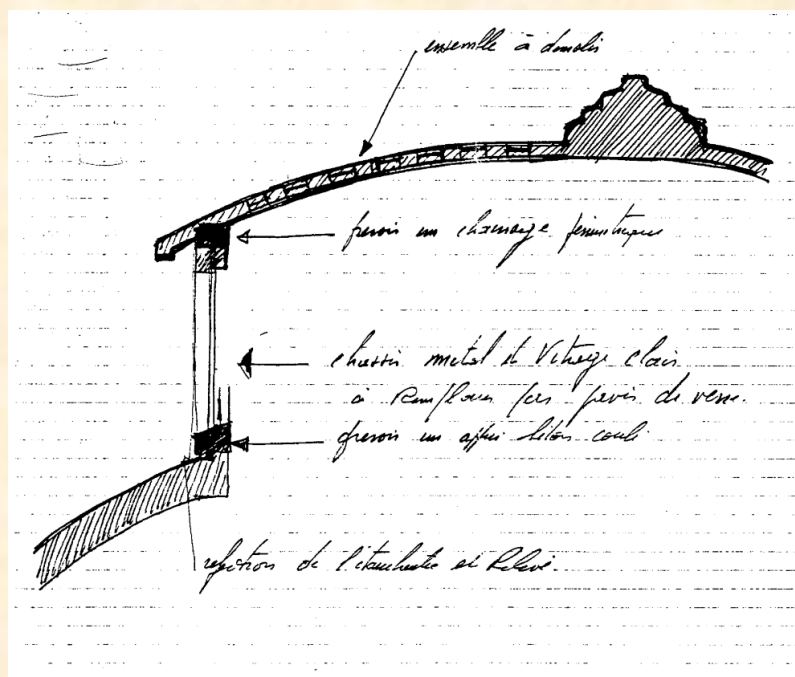 ensemble à démolir
prevoir un chainage périmétrique
chassis métal et Vitrage clair
à Remplacer par pavés de verre.
prevoir un appui béton coulé
refection de l'étanchéité et Relevé.